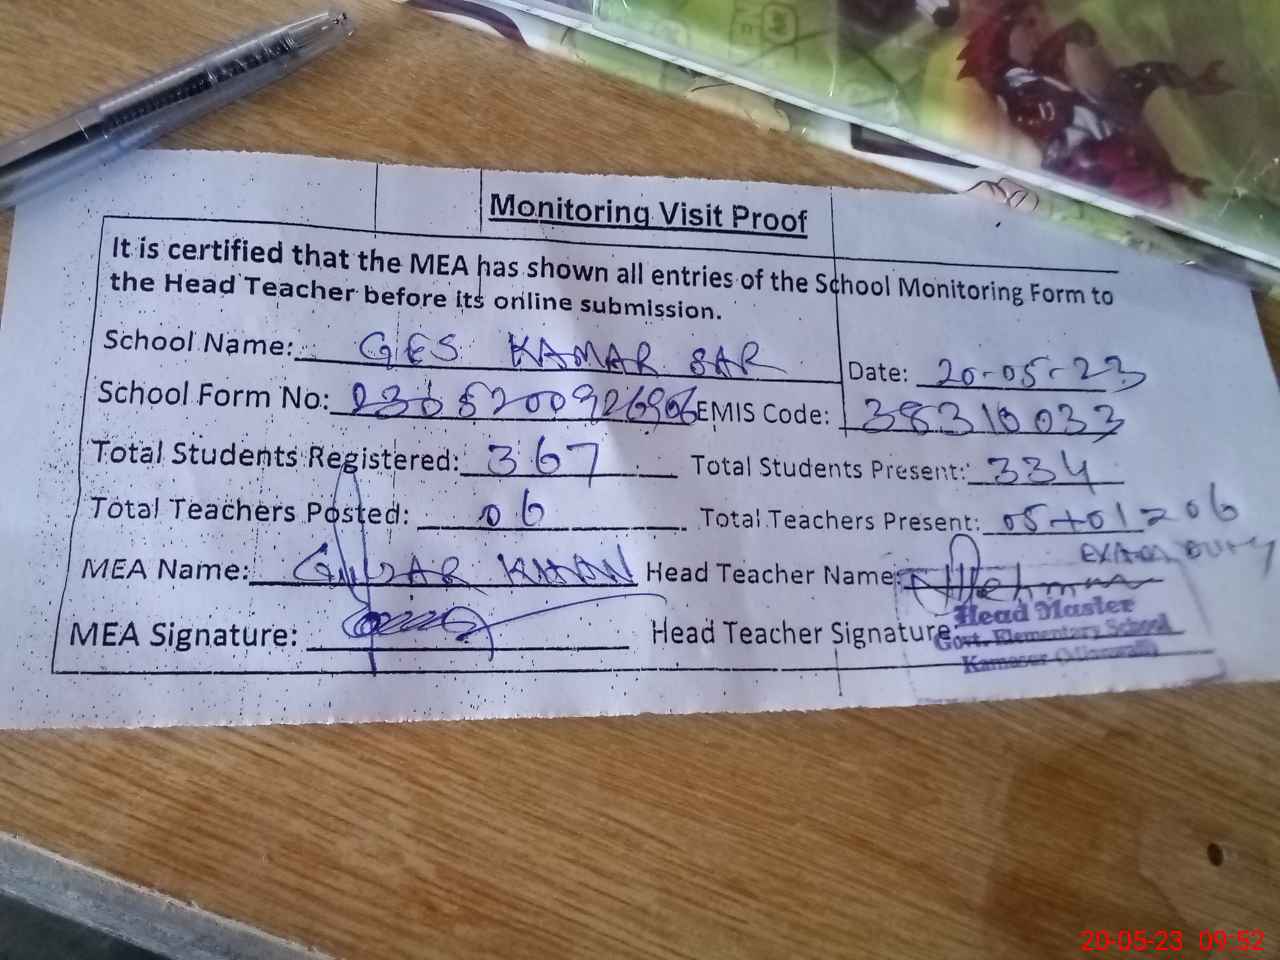 Monitoring Visit Proof
It is certified that the MEA has shown all entries of the School Monitoring Form to
the Head Teacher before its online submission.
School Name: GES KAMAR SAR
Date: 20-05-23
School Form No:
EMIS Code: 38310033
Total Students Registered: 367
Total Students Present: 334
Total Teachers Posted: 06
Total Teachers Present: 05+01=06
EXAM DUTY
MEA Name: GULZAR KHAN
Head Teacher Name:
MEA Signature:
Head Teacher Signature
Head Master
Govt. Elementary School
Kamasar (Mianwali)
20-05-23 09:52